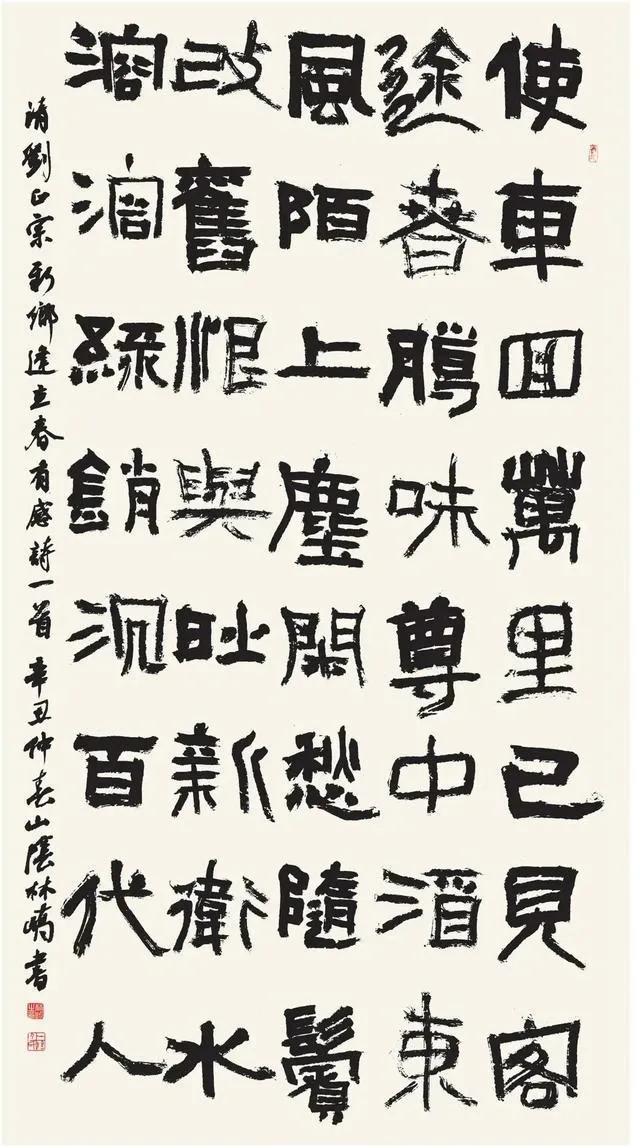 使車回萬里已見客
途春臘味尊中酒東
風陌上塵閑愁隨鬢
改舊恨與時新衛水
溶溶綠銷沉百代人
清劉正宗新鄉逢立春有感詩一首 辛丑仲春山陰林嶠書